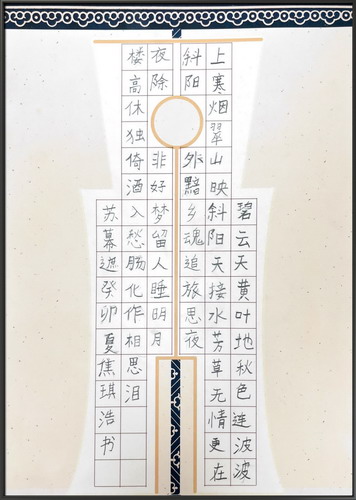 碧云天黄叶地秋色连波波
上寒烟翠山映斜阳天接水芳草无情更在
斜阳外黯乡魂追旅思夜
夜除非好梦留人睡明月
楼高休独倚酒入愁肠化作相思泪
苏幕遮癸卯夏焦琪浩书